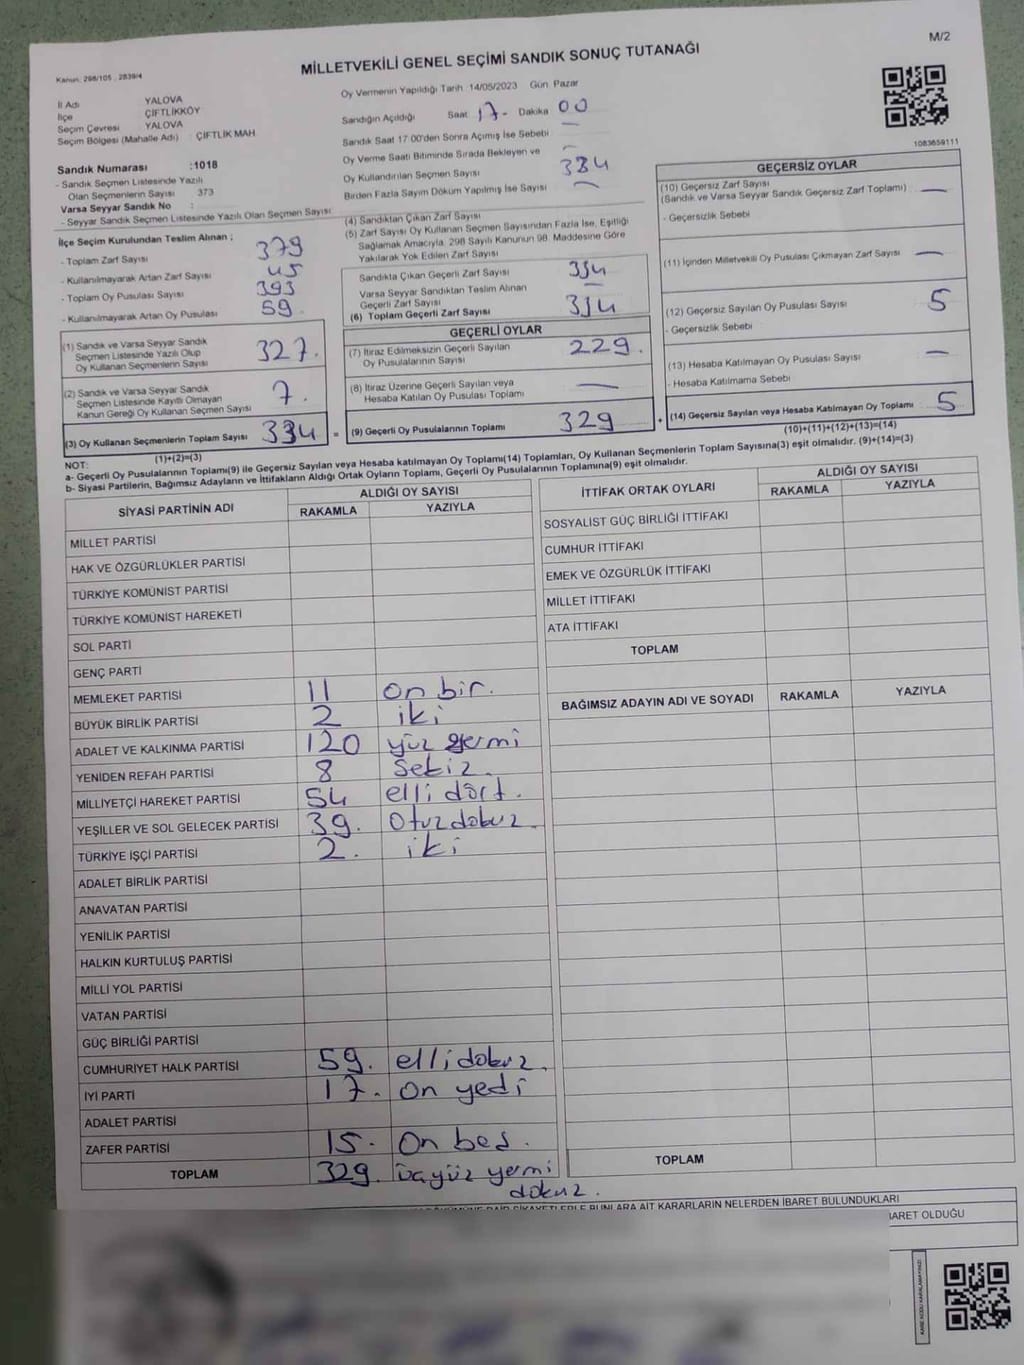 M/2
MİLLETVEKİLİ GENEL SEÇİMİ SANDIK SONUÇ TUTANAĞI
Kanun: 298/105 , 2839/4
İl Adı YALOVA
İlçe ÇİFTLİKKÖY
Seçim Çevresi YALOVA
Seçim Bölgesi (Mahalle Adı) : ÇİFTLİK MAH
Sandık Numarası :1018
- Sandık Seçmen Listesinde Yazılı
Olan Seçmenlerin Sayısı 373
Varsa Seyyar Sandık No :
- Seyyar Sandık Seçmen Listesinde Yazılı Olan Seçmen Sayısı:
Oy Vermenin Yapıldığı Tarih 14/05/2023 Gün Pazar
Sandığın Açıldığı Saat 17- Dakika 00
Sandık Saat 17:00'den Sonra Açımış İse Sebebi —
Oy Verme Saati Bitiminde Sırada Bekleyen ve —
Oy Kullandırılan Seçmen Sayısı 334
Birden Fazla Sayım Döküm Yapılmış İse Sayısı —
1083659111
İlçe Seçim Kurulundan Teslim Alınan :
- Toplam Zarf Sayısı 379
- Kullanılmayarak Artan Zarf Sayısı 45
- Toplam Oy Pusulası Sayısı 393
- Kullanılmayarak Artan Oy Pusulası 59
(1) Sandık ve Varsa Seyyar Sandık
Seçmen Listesinde Yazılı Olup
Oy Kullanan Seçmenlerin Sayısı 327.
(2) Sandık ve Varsa Seyyar Sandık
Seçmen Listesinde Kayıtlı Olmayan
Kanun Gereği Oy Kullanan Seçmen Sayısı 7.
(3) Oy Kullanan Seçmenlerin Toplam Sayısı 334 =
(1)+(2)=(3)
(4) Sandıktan Çıkan Zarf Sayısı
(5) Zarf Sayısı Oy Kullanan Seçmen Sayısından Fazla İse, Eşitliği
Sağlamak Amacıyla, 298 Sayılı Kanunun 98. Maddesine Göre
Yakılarak Yok Edilen Zarf Sayısı
Sandıkta Çıkan Geçerli Zarf Sayısı 334
Varsa Seyyar Sandıktan Teslim Alınan
Geçerli Zarf Sayısı —
(6) Toplam Geçerli Zarf Sayısı 334
GEÇERLİ OYLAR
(7) İtiraz Edilmeksizin Geçerli Sayılan
Oy Pusulalarının Sayısı 229.
(8) İtiraz Üzerine Geçerli Sayılan veya
Hesaba Katılan Oy Pusulası Toplamı —
(9) Geçerli Oy Pusulalarının Toplamı 329 +
GEÇERSİZ OYLAR
(10) Geçersiz Zarf Sayısı
(Sandık ve Varsa Seyyar Sandık Geçersiz Zarf Toplamı) —
- Geçersizlik Sebebi
(11) İçinden Milletvekili Oy Pusulası Çıkmayan Zarf Sayısı —
(12) Geçersiz Sayılan Oy Pusulası Sayısı 5
- Geçersizlik Sebebi
(13) Hesaba Katılmayan Oy Pusulası Sayısı —
- Hesaba Katılmama Sebebi
(14) Geçersiz Sayılan veya Hesaba Katılmayan Oy Toplamı 5
(10)+(11)+(12)+(13)=(14)
NOT:
a- Geçerli Oy Pusulalarının Toplamı(9) ile Geçersiz Sayılan veya Hesaba katılmayan Oy Toplamı(14) Toplamları, Oy Kullanan Seçmenlerin Toplam Sayısına(3) eşit olmalıdır. (9)+(14)=(3)
b- Siyasi Partilerin, Bağımsız Adayların ve İttifakların Aldığı Ortak Oyların Toplamı, Geçerli Oy Pusulalarının Toplamına(9) eşit olmalıdır.
SİYASİ PARTİNİN ADI ALDIĞI OY SAYISI
RAKAMLA YAZIYLA
MİLLET PARTİSİ
HAK VE ÖZGÜRLÜKLER PARTİSİ
TÜRKİYE KOMÜNİST PARTİSİ
TÜRKİYE KOMÜNİST HAREKETİ
SOL PARTİ
GENÇ PARTİ
MEMLEKET PARTİSİ 11 on bir.
BÜYÜK BİRLİK PARTİSİ 2 iki
ADALET VE KALKINMA PARTİSİ 120 yüz yermi
YENİDEN REFAH PARTİSİ 8 Sekiz.
MİLLİYETÇİ HAREKET PARTİSİ 54 elli dört.
YEŞİLLER VE SOL GELECEK PARTİSİ 39. Otuzdokuz.
TÜRKİYE İŞÇİ PARTİSİ 2. iki
ADALET BİRLİK PARTİSİ
ANAVATAN PARTİSİ
YENİLİK PARTİSİ
HALKIN KURTULUŞ PARTİSİ
MİLLİ YOL PARTİSİ
VATAN PARTİSİ
GÜÇ BİRLİĞİ PARTİSİ
CUMHURİYET HALK PARTİSİ 59. ellidokuz.
İYİ PARTİ 17. on yedi
ADALET PARTİSİ
ZAFER PARTİSİ 15. On beş.
TOPLAM 329. üçyüz yermi
dokuz.
İTTİFAK ORTAK OYLARI ALDIĞI OY SAYISI
RAKAMLA YAZIYLA
SOSYALİST GÜÇ BİRLİĞİ İTTİFAKI
CUMHUR İTTİFAKI
EMEK VE ÖZGÜRLÜK İTTİFAKI
MİLLET İTTİFAKI
ATA İTTİFAKI
TOPLAM
BAĞIMSIZ ADAYIN ADI VE SOYADI RAKAMLA YAZIYLA
TOPLAM
BUNLARA AİT KARARLARIN NELERDEN İBARET BULUNDUKLARI
BARET OLDUĞU